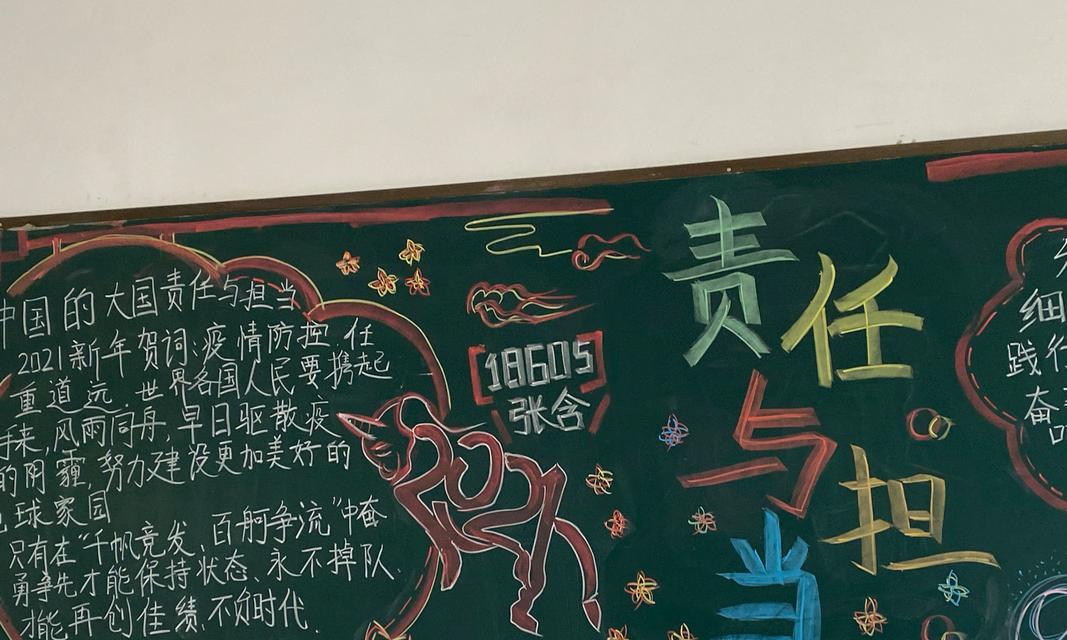 中国的大国责任与担当
2021新年贺词:疫情防控,任
重道远,世界各国人民要携起
手来,风雨同舟,早日驱散疫
的阴霾,努力建设更加美好的
球家园
只有在"千帆竞发,百舸争流"中奋
勇争先才能保持状态、永不掉队.
才能再创佳绩,不负时代.
18605
张含
责任
与担
当
细
践行
奋